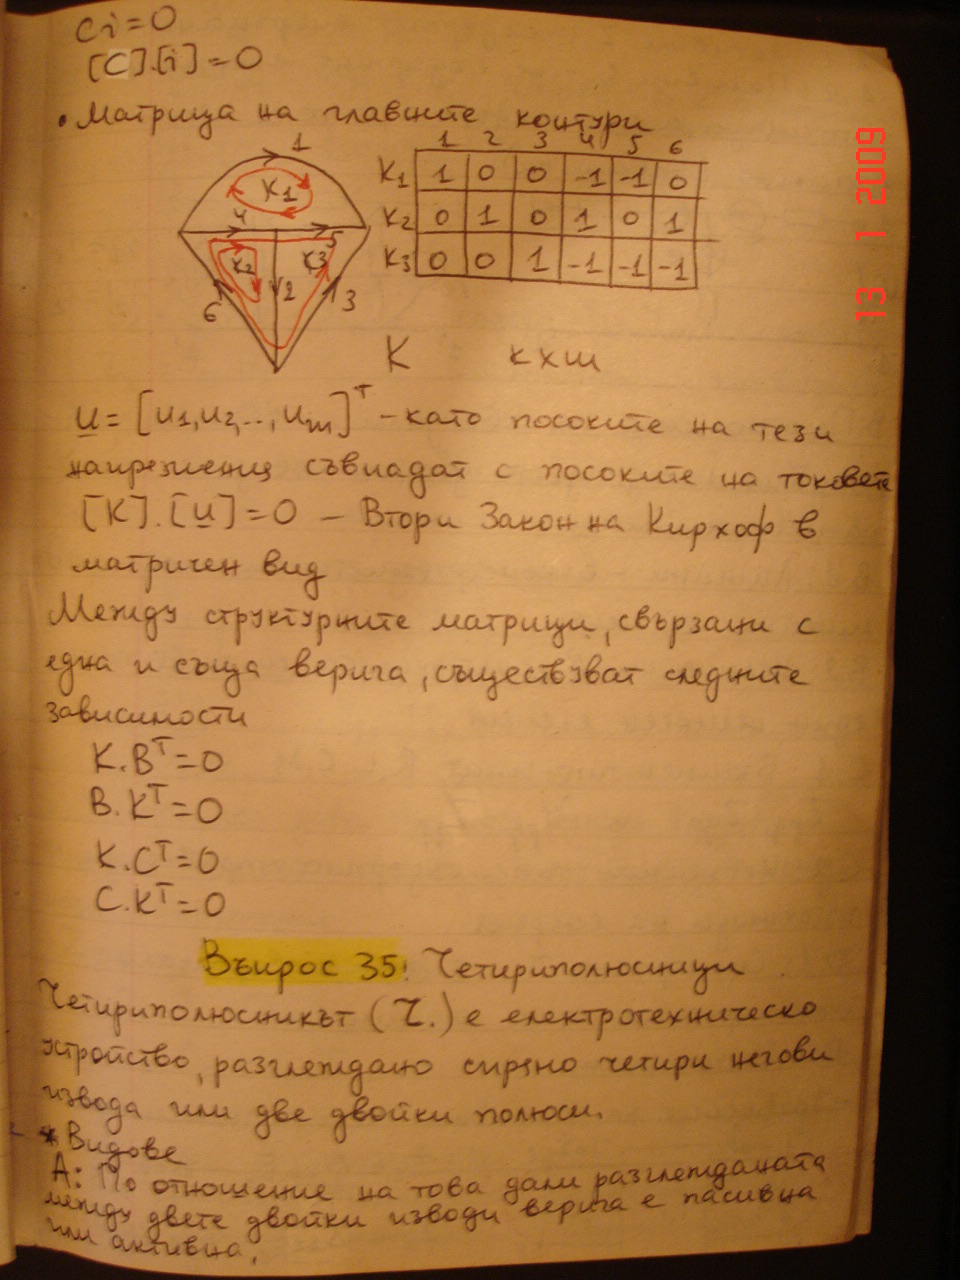 ci=0
[C].[i]=0
• Матрица на главните контури
1 2 3 4 5 6
K1 1 0 0 -1 -1 0
K2 0 1 0 1 0 1
K3 0 0 1 -1 -1 -1
1
K1
4 5
K2 K3
2
6 3
K к x m
u = [u1, u2, .., um]ᵀ - като посоките на тези
напрежения съвпадат с посоките на токовете
[K].[u]=0 – Втори Закон на Кирхоф в
матричен вид
Между структурните матрици, свързани с
една и съща верига, съществуват следните
зависимости
K.Bᵀ=0
B.Kᵀ=0
K.Cᵀ=0
C.Kᵀ=0
Въпрос 35: Четириполюсници
Четириполюсникът (Ч.) е електротехническо
устройство, разглеждано спрямо четири негови
извода или две двойки полюси.
* Видове
А: По отношение на това дали разглежданата
между двете двойки изводи верига е пасивна
или активна.
13 1 2009